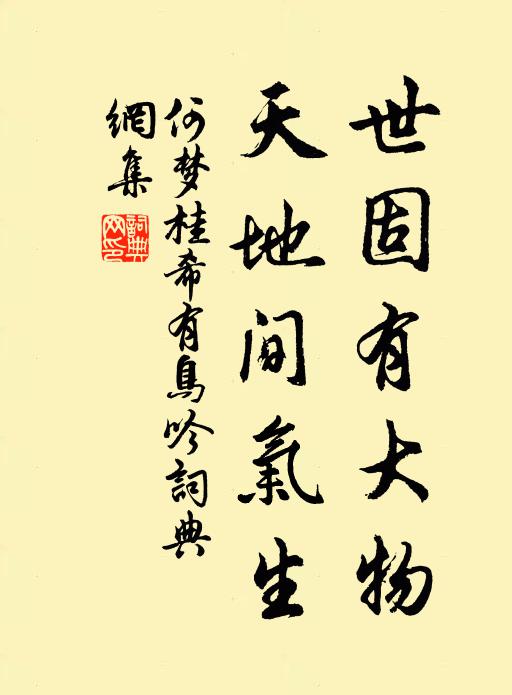 世固有大物
天地間氣生
何梦桂希有鳥吟詞典
網集
詞典
网印